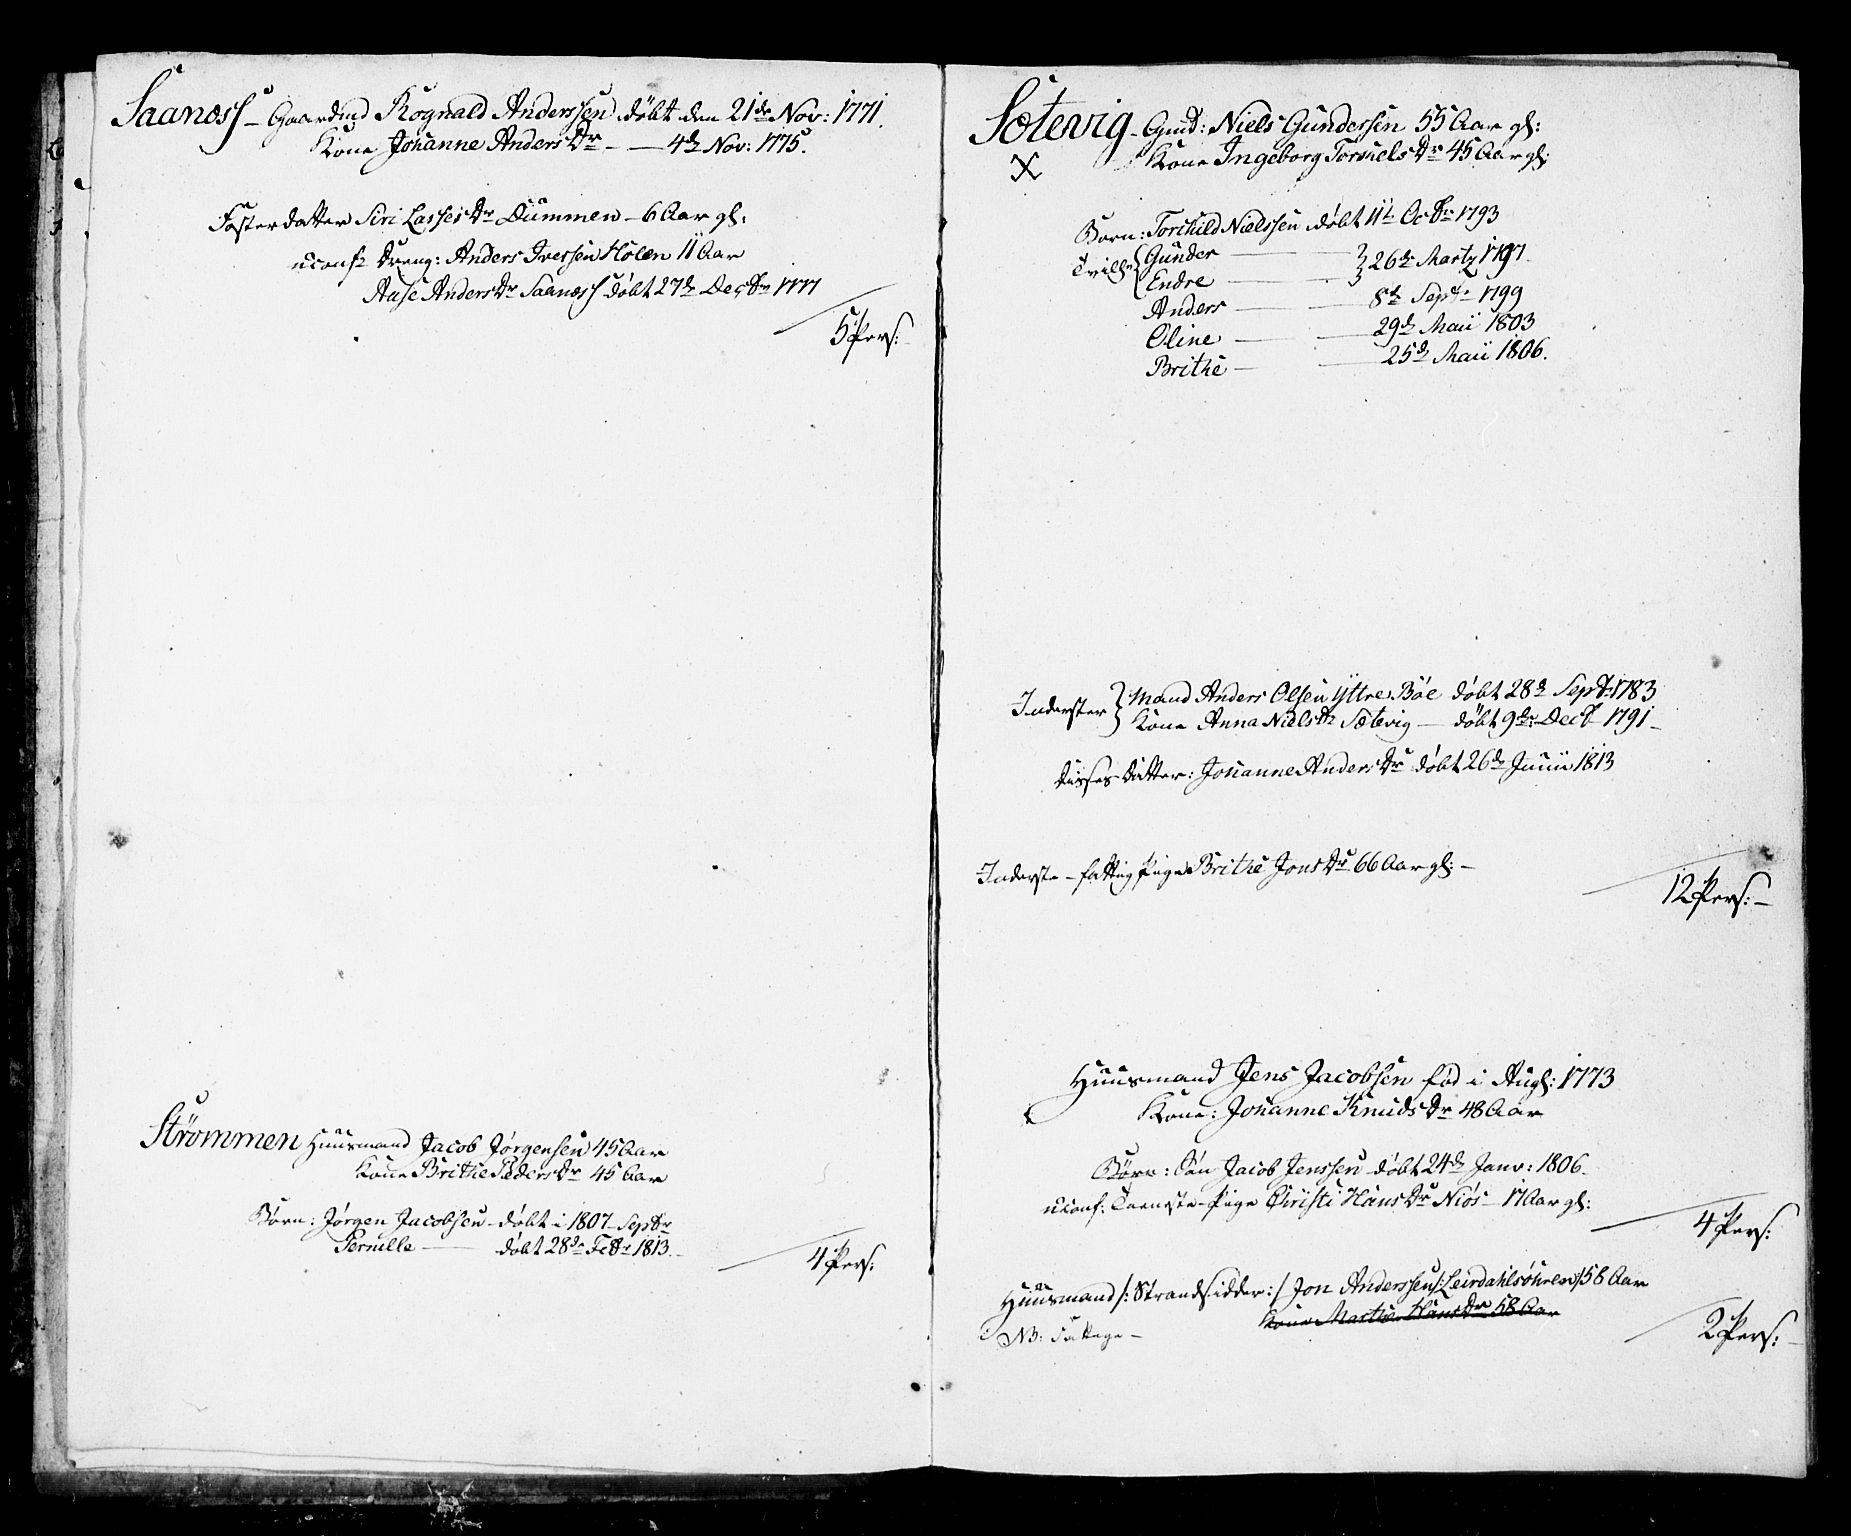 Saanæss – Gaardmd Rognald Anderssen døbt den 21de Nov: 1771.
Kone Johanne Anders Dr – — 4de Nov: 1775.
Fosterdatter Siri Lasses Dr Dümmen – 6 Aar gl:
uconf. Dreng: Anders Iversen Holen 11 Aar
Aase Anders Dr Saanæss døbt 27de Decbr 1777
5 Pers:
Strømmen Huusmand Jacob Jørgensen 45 Aar
Kone Brithe Peders Dr 45 Aar
Børn: Jørgen Jacobsen – døbt i 1807 – Septbr
Pernille — døbt 28de Febr 1813. –
4 Pers:
Sætevig – Gmd: Niels Gundersen 55 Aar gl:
X Kone Ingeborg Torkiels Dr 45 Aar gl:
Børn: Torchild Nielssen døbt 11te Octbr 1793
Tvill: { Gunder — } 26de Martz 1797.
Endre —
Anders — 8de Septr 1799
Oline — 29de Maii 1803
Brithe — 25de Maii 1806.
Inderster } Mand Anders Olsen Yttre Böe døbt 28de Septr 1783
Kone Anna Niels Dr Sætevig — døbt 9de Decbr 1791 –
disses Datter: Johanne Anders Dr døbt 26de Junii 1813
Inderste – fattig Pige Brithe Jons Dr 66 Aar gl: –
12 Pers: –
Huusmand Jens Jacobsen fød i Augs: 1773
Kone: Johanne Knuds Dr 48 Aar
Børn: Søn Jacob Jenssen døbt 24de Janv: 1806.
uconf: Tieneste-Pige Christi Hans Dr Niøs – 17 Aar gl:
4 Pers:
Huusmand /: Strandsidder :/ Jon Anderssen /: Leirdahlsøhren :/ 58 Aar
Kone Marthe Hans Dr 58 Aar
NB:
2 Pers: –